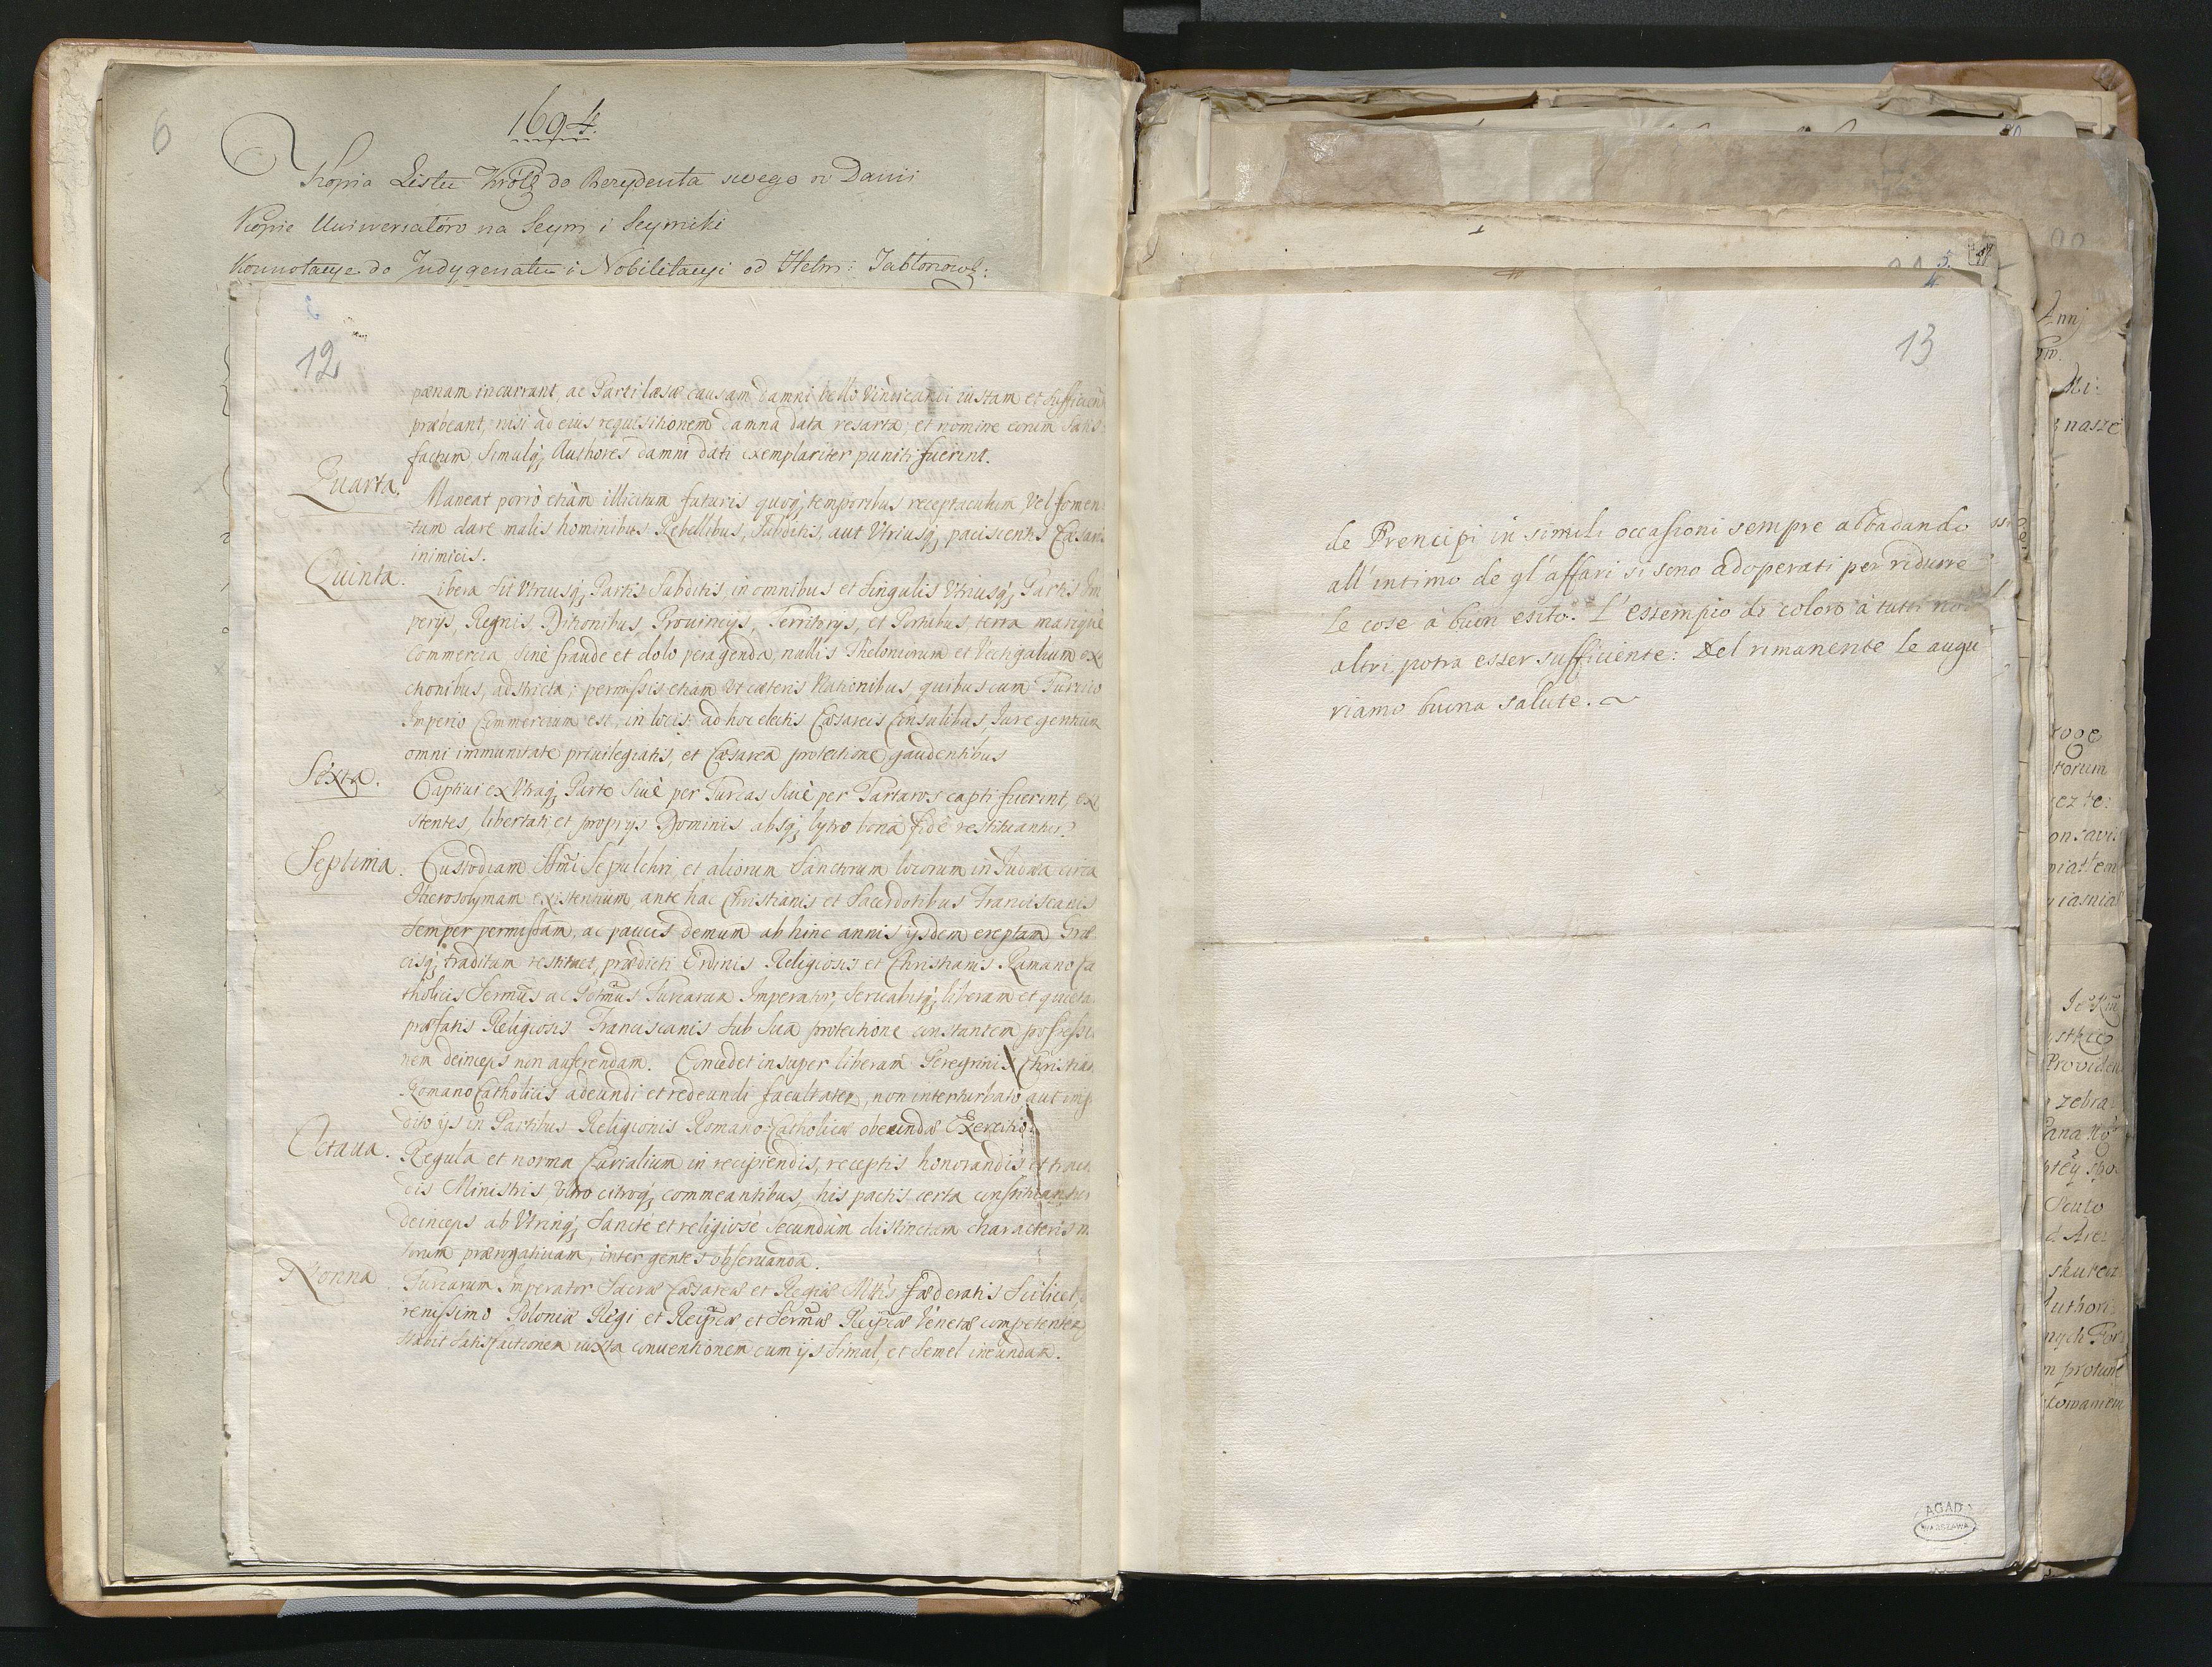 6
1694.
Kopia Listu Króle do Rezydenta swego w Danii
Kopie Uniwersałów na Seym i Seymiki
Konnotacye do Indygenatu i Nobilitacyi od Hetm: Jabłonows:
12
pænam incurrant, ac Parti læsæ causam damni bello vindicandi iustam et sufficien
præbeant, nisi ad eius requisitionem damna data resarta, et nomine eorum satis
factum, simulq; Authores damni dati exemplariter puniti fuerint.
Quarta.
Maneat porrò etiàm illicitum futuris quoq; temporibus receptaculum vel fomen
tum dare malis hominibus Rebellibus, Subditis, aut Utriusq; paciscentis Cæsaris
inimicis.
Quinta.
Libera sit Utriusq; Partis Subditis in omnibus et singulis Utriusq; Partis Im
perijs, Regnis Ditionibus, Provincijs, Territorijs, et Portubus, terra mariquè
Commercia, sinè fraude et dolo peragenda, nullis Theloniorum et Vectigalium exa
ctionibus, adstricta; permissis etiam Ut cæteris Nationibus, quibus cum Turcico
Imperio Commercium est, in locis ad hoc electis Cæsareis Consulibus, Iure gentium
omni immunitate privilegiatis, et Cæsarea protectione gaudentibus
Sexta.
Captivi ex Utraq; Parte sivè per Turcas sivè per Tartaros capti fuerint, exi
stentes, libertati et proprijs Dominis absq; lytro bonà fidè restituantur.
Septima.
Custodiam Ssmi Sepulchri, et aliorum Sanctorum locorum in Judæa circa
Hierosolymam existentium, ante hac Christianis et Sacerdotibus Franciscanis
semper permissam, ac paucis demum ab hinc annis ijsdem ereptam Græ
cisq; traditam restituet, prædicti Ordinis Religiosis et Christianis Romano Ca
tholicis Sermus ac Potmus Turcarum Imperator, servabitq; liberam et quieta
præfatis Religiosis Franciscanis sub sua protectione constantem possessio
nem deinceps non auferendam. Concedet insuper liberam Peregrinis Christian
Romano Catholicis adeundi et redeundi facultatem, non interturbato aut imp
dito ijs in Partibus Religionis Romano-Catholicæ obeundæ Exercitio.
Octava.
Regula et norma Curialium in recipiendis, receptis honorandis et tract
dis Ministris, Ultro citroq; commeantibus, his pactis certa constituantur
deinceps ab Utrinq; sanctè et religiosè secundùm distinctam characteris m
torum prærogativam, inter gentes observanda.
Nonna
Turcarum Imperator Sacræ Cæsareæ et Regiæ Mtis fæderatis scilicet
renissimo Poloniæ Regi et Reipcæ et Sermæ Reipcæ Venetæ competentem
dabit satisfactionem iuxta conventionem cum ijs simul, et semel ineundam.
13
de Prencipi in simili occasioni sempre abbadando
all'intimo de gl'affari si sono adoperati per ridurre
le cose à buon esito. L'essempio di coloro à tutti noi
altri potra esser sufficiente: Del rimanente le augu
riamo buona salute.
AGAD
WARSZAWA
5.
4
Annj
nasze
torum
Providen
zebra
skutecz
Authori
nych For